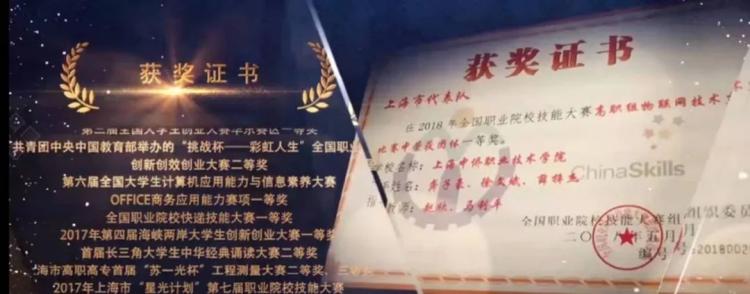 获奖证书
第二届全国大学生创业大赛华东赛区一等奖
"共青团中央中国教育部举办的"挑战杯——彩虹人生"全国职业
创新创效创业大赛二等奖
第六届全国大学生计算机应用能力与信息素养大赛
OFFICE商务应用能力赛项一等奖
全国职业院校快递技能大赛一等奖
2017年第四届海峡两岸大学生创新创业大赛一等奖
首届长三角大学生中华经典诵读大赛二等奖
海市高职高专首届"苏一光杯"工程测量大赛二等奖、三等奖
2017年上海市"星光计划"第七届职业院校技能大赛
获奖证书
上海市代表队
在2018年全国职业院校技能大赛高职组物联网技术
比赛中荣获团体一等奖。
学校名称：上海中侨职业技术学院
姓名：龚子豪、徐文斌、薛梓杰
指导教师：赵欣、马利平
ChinaSkills
全国职业院校技能大赛组织委员
二〇一八年五月
编号：2018002